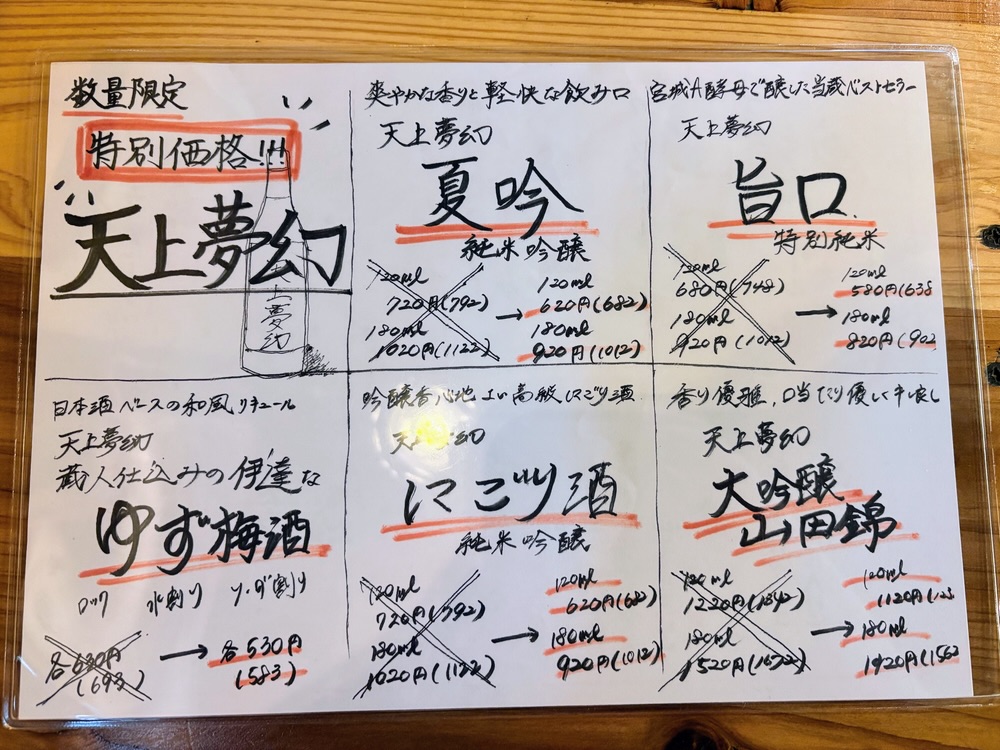 数量限定
特別価格!!!
天上夢幻
爽やかな香りと軽快な飲み口
天上夢幻
夏吟
純米吟醸
120ml
720円(792)
180ml
1020円(1122)
→
120ml
620円(682)
180ml
920円(1012)
宮城A酵母で醸した当蔵ベストセラー
天上夢幻
旨口
特別純米
120ml
680円(748)
180ml
920円(1012)
→
120ml
580円(638
180ml
820円(902
日本酒ベースの和風リキュール
天上夢幻
蔵人仕込みの伊達な
ゆず梅酒
ロック 水割り ソーダ割り
各630円
(693)
→
各530円
(583)
吟醸香心地よい高級にごり酒
天上夢幻
にごり酒
純米吟醸
120ml
720円(792)
180ml
1020円(1122)
→
120ml
620円(682)
180ml
920円(1012)
香り優雅、口当たり優しく
天上夢幻
大吟醸
山田錦
120ml
1220円(1342)
180ml
1520円(1672)
→
120ml
1120円(123
180ml
1420円(1562